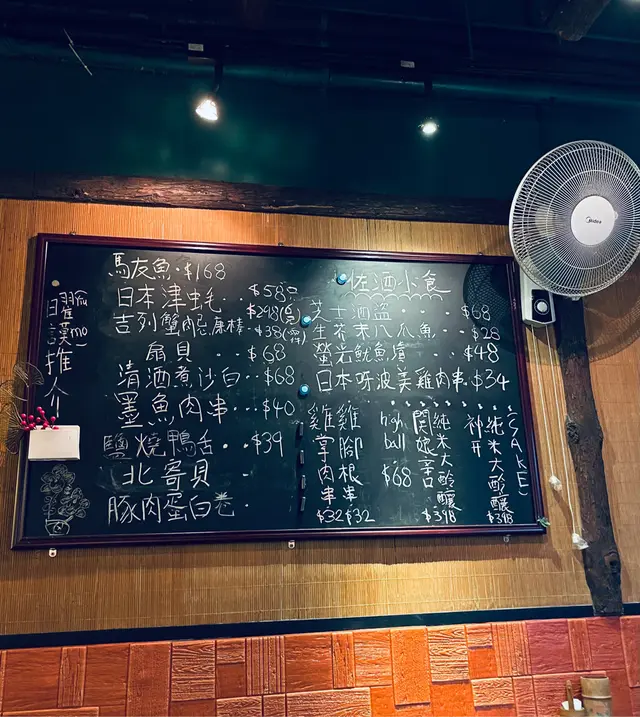 馬友魚·$168
日本津蚝··$58
吉列蟹肉忌廉棒··$38
扇貝··$68
清酒煮沙白··$68
墨魚肉串··$40
鹽燒鴨舌··$39
北寄貝
豚肉蛋白卷·
推介
(Yiu
mo)
佐酒小食
芝士酒盜···$68
生芥末八爪魚··$28
螢光魷魚···$48
日本呀波美雞肉串·$34
雞掌肉串
$32
雞腳根串
$32
high
ball
$68
純米大酚釀
$398
(SAKE)
純米大酚釀
$398
Midea